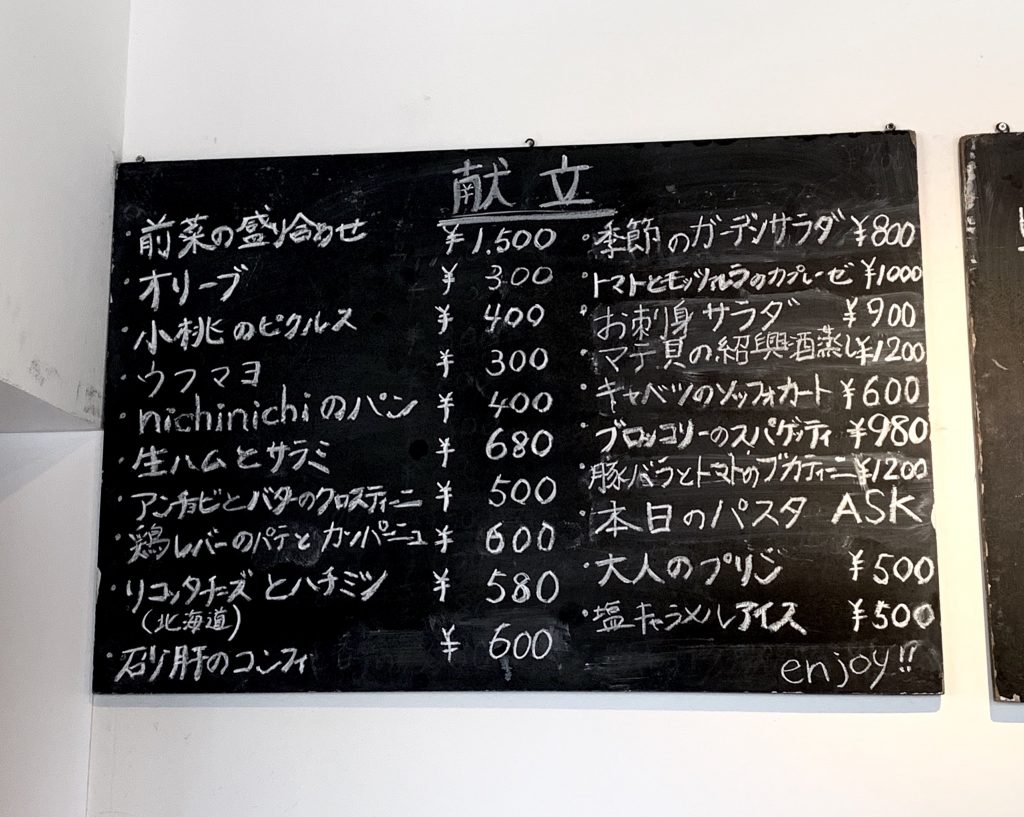 献立
・前菜の盛り合わせ ¥1.500
・オリーブ ¥300
・小桃のピクルス ¥400
・ウフマヨ ¥300
・nichinichiのパン ¥400
・生ハムとサラミ ¥680
・アンチョビとバターのクロスティーニ ¥500
・鶏レバーのパテとカンパーニュ ¥600
・リコッタチーズとハチミツ ¥580
(北海道)
・砂肝のコンフィ ¥600
・季節のガーデンサラダ ¥800
・トマトとモッツァレラのカプレーゼ ¥1000
・お刺身サラダ ¥900
・マテ貝の紹興酒蒸し ¥1200
・キャベツのソッフォカート ¥600
・ブロッコリーのスパゲッティ ¥980
・豚バラとトマトのブカティーニ ¥1200
・本日のパスタ ASK
・大人のプリン ¥500
・塩キャラメルアイス ¥500
enjoy!!